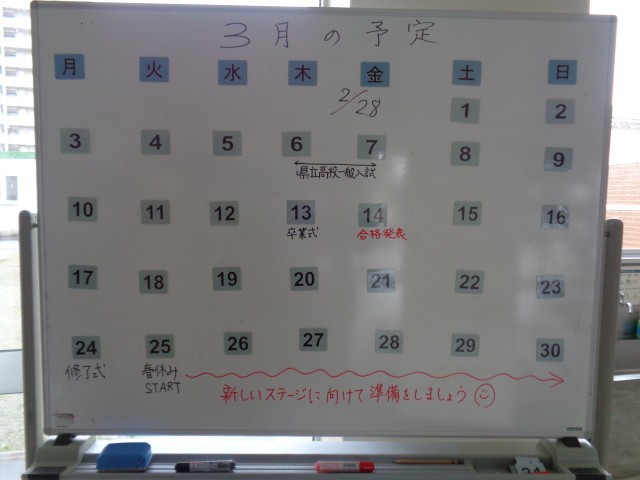 3月の予定
月 火 水 木 金 土 日
2/28 1 2
3 4 5 6 7 8 9
県立高校一般入試
10 11 12 13 14 15 16
卒業式 合格発表
17 18 19 20 21 22 23
24 25 26 27 28 29 30
修了式 春休み
START
新しいステージに向けて準備をしましょう